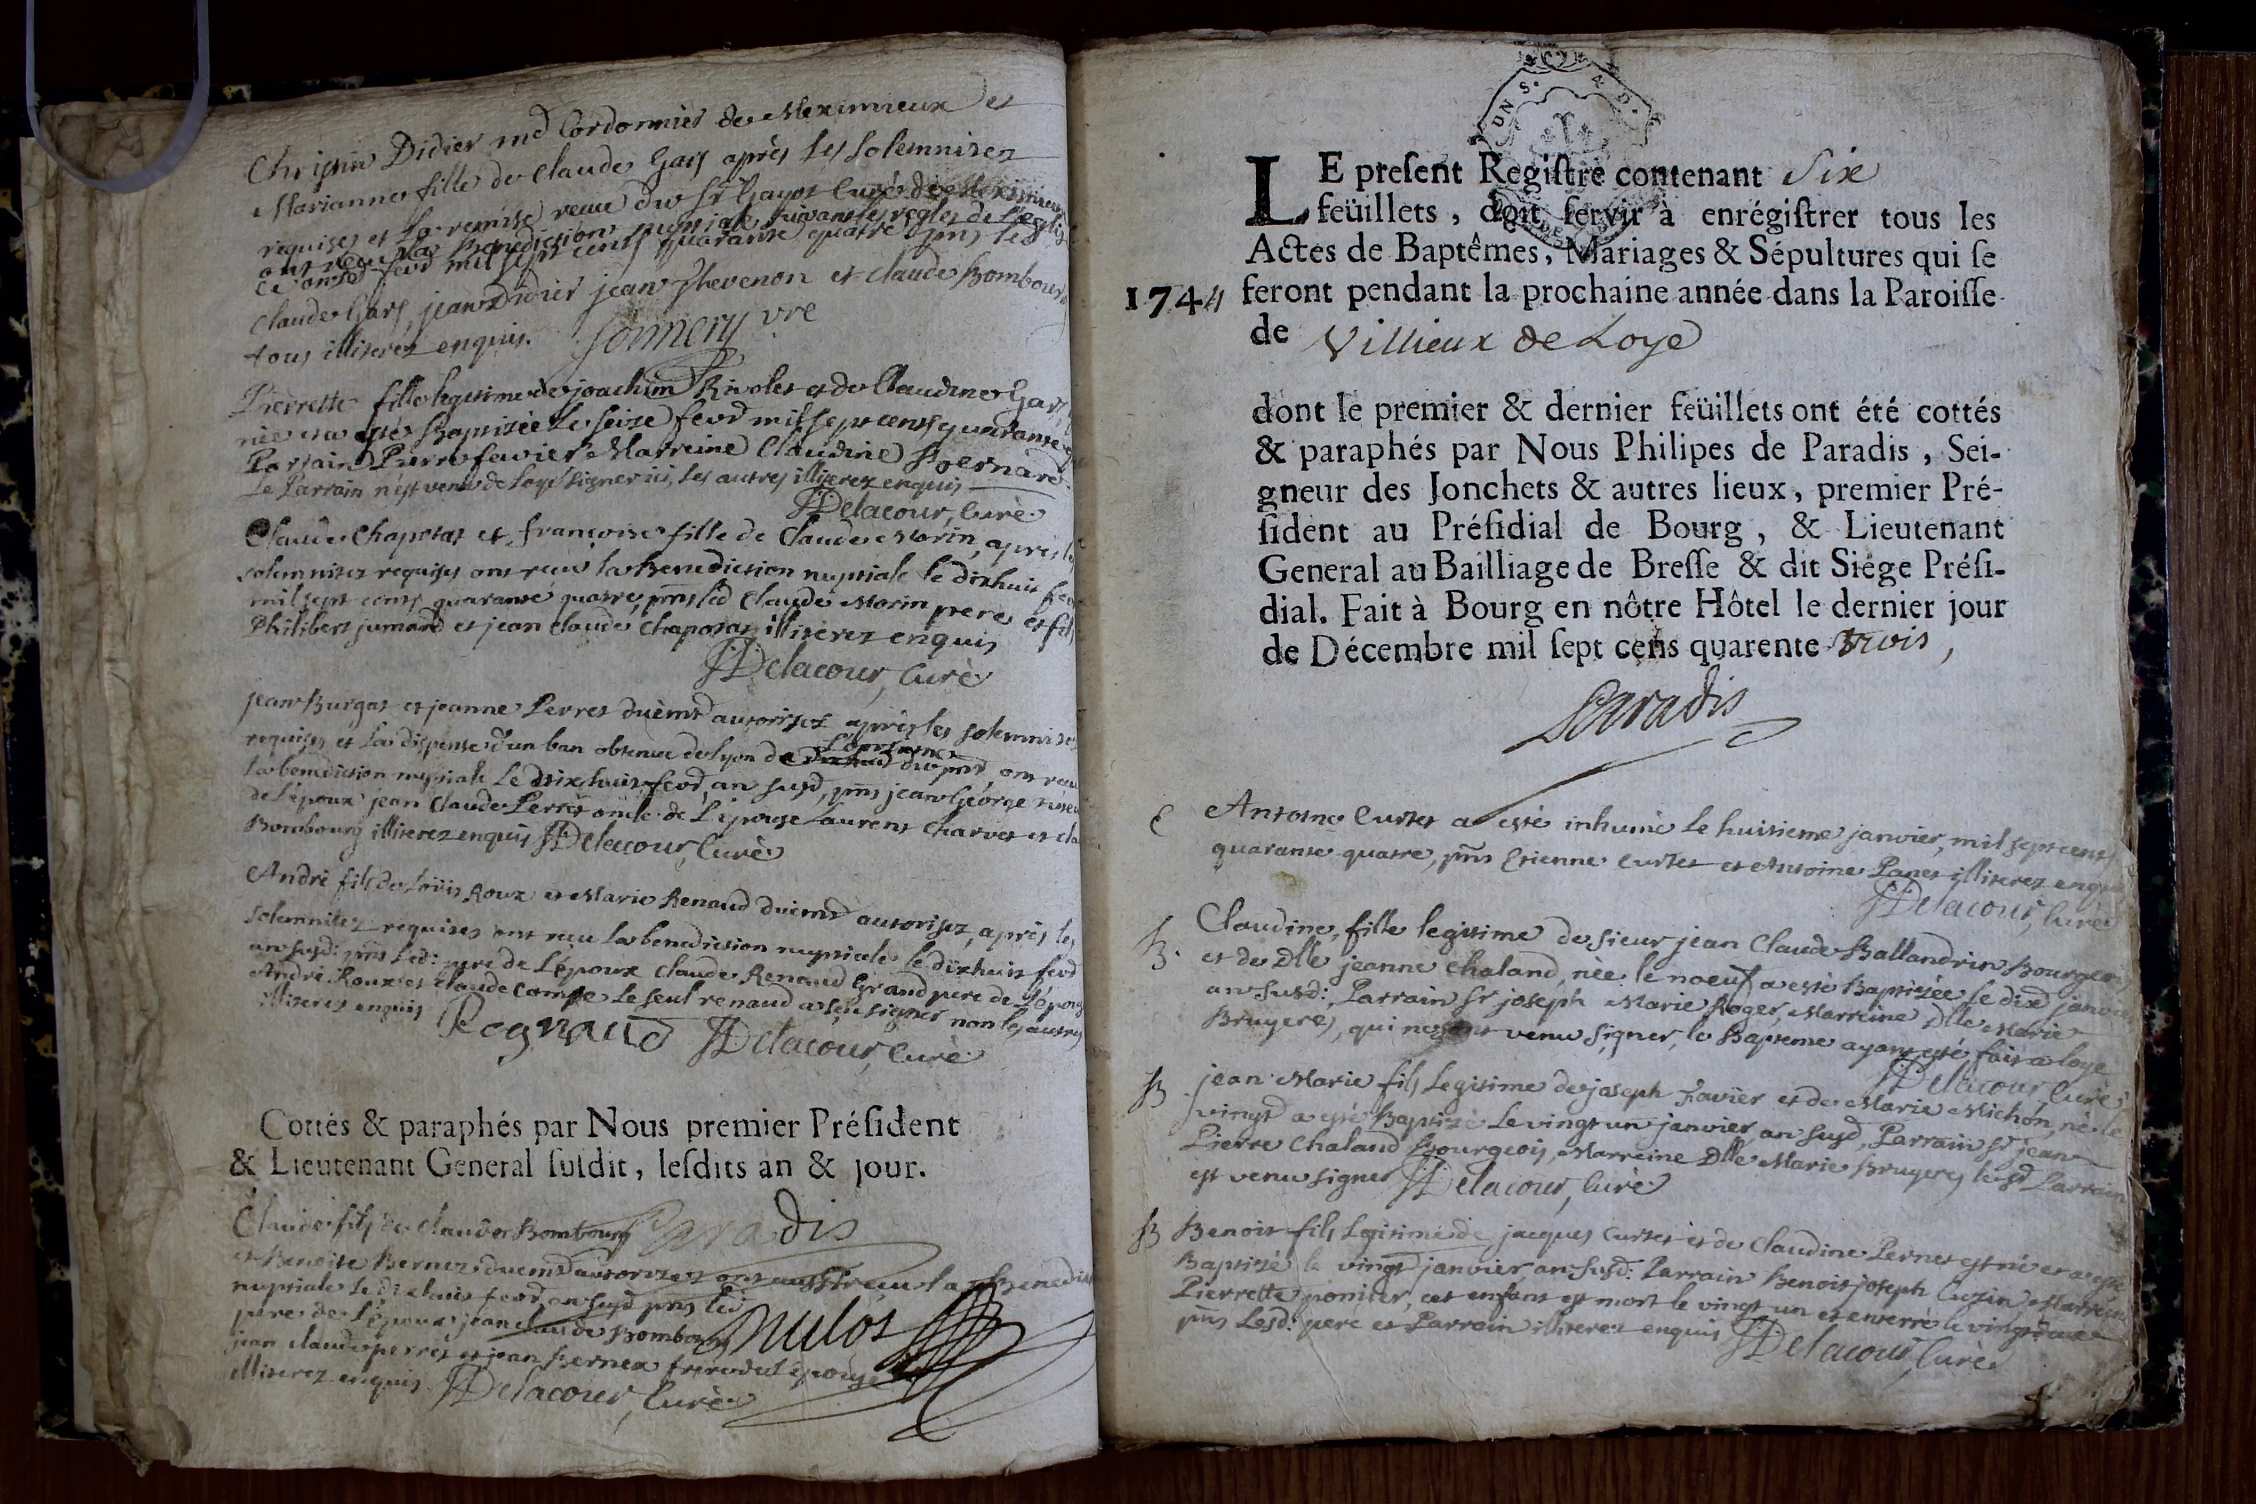 Christin Didier md Cordonnier de Meximieux et
Marianne fille de Claude Gars après les solemnitez
requises et la remise reçue du Sr Curé de Meximieux
ont reçu la Benediction nuptiale suivant les regles de l'eglise
ce fevd mil sept cents quarante quatre pnts led
Claude Gars, jean Didier jean Thevenon et Claude Bombourg
tous illiterez enquis. Sonnery vre
Pierrette fille legitime de joachim Rivolet et de Claudine Gars
née et a esté Baptizée Le seize fevd mil sept cents quarante
Parrain Pierre favier Marreine Claudine Bernard
Le Parrain n'est venu de Loye signer ici, Les autres illiterez enquis
Delacour, Curè
Claude Chapotat et françoise fille de Claude Morin, apres les
solemnitez requises ont reçu la Benediction nuptiale le dixhuit fevd
mil sept cents quarante quatre, pnts led Claude Morin pere et fils
Philibert jumard et jean Claude Chapotat illiterez enquis
Delacour, Curè
jean Burgat et jeanne Perret duèmt autorisez après les solemnitez
requises et La dispense d'un ban obtenue de Lyon du pnt, ont reçu
la benediction nuptiale Le dixhuit fevd, an susd, pnts jean George
de l'époux jean Claude Perret oncle de L'épouse Laurent Charvet et
Bombourg illiterez enquis Delacour, Curè
André fils de Loüis Roux et Marie Renaud duemt autorisez, après les
solemnitez requises ont reçu la benediction nuptiale le dixhuit fevd
an susd: pnts Led: pere de L'époux Claude Renaud Grand pere de L'épouse
André Roux et Claude Compte Le seul renaud a sçu signer non les autres
illiterez enquis Regnaud Delacour, Curè
Cottés & paraphés par Nous premier Président
& Lieutenant General susdit, lesdits an & jour.
Claude fils de Claude Bombourg Paradis
et Benoite Bernex duemt autorizez ont aussi reçu la Benediction
nuptiale le dixhuit fevd an susd pnts led
pere de L'époux jean Claude Bombourg
jean Claude perret et jean Bernex frere de l'épouse
illiterez enquis Delacour, Curè
LE present Registre contenant Six
feüillets, doit servir à enrégistrer tous les
Actes de Baptêmes, Mariages & Sépultures qui se
1744 feront pendant la prochaine année dans la Paroisse
de Villieux de Loye
dont le premier & dernier feüillets ont été cottés
& paraphés par Nous Philipes de Paradis, Sei-
gneur des Jonchets & autres lieux, premier Pré-
sident au Présidial de Bourg, & Lieutenant
General au Bailliage de Bresse & dit Siége Prési-
dial. Fait à Bourg en nôtre Hôtel le dernier jour
de Décembre mil sept cens quarente trois,
Paradis
Antoine Curtet a esté inhumè Le huitieme janvier, mil sept cents
quarante quatre, pnts Etienne Curtet et Antoine Panet illiterez enquis
Delacour, Curè
B. Claudine, fille legitime de sieur jean Claude Ballandrin Bourgeois
et de Dlle jeanne Chaland, née le noeuf a esté Baptizée le dix janvier
an susd: Parrain Sr joseph Marie Roger, Marreine Dlle Marie
Bruyeres, qui venu signer, le Bapteme ayant esté fait a Loye
Delacour, Curè
B jean Marie fils Legitime de joseph Favier et de Marie Michon, nè le
vingt a esté Baptizé Le vingt un janvier, an susd, Parrain Sr jean
Pierre Chaland Bourgeois, Marreine Dlle Marie Bruyeres led Parrain
est venu signer Delacour, Curè
B Benoit fils Legitime de jacques Curtet et de Claudine Pernet est né et a esté
Baptizé le vingt janvier an susd: Parrain Benoit joseph Cuzin Marreine
Pierrette poncier, cet enfant est mort le vingt un et enterré le vingt deux
pnts Lesd: pere et Parrain illiterez enquis Delacour, Curè